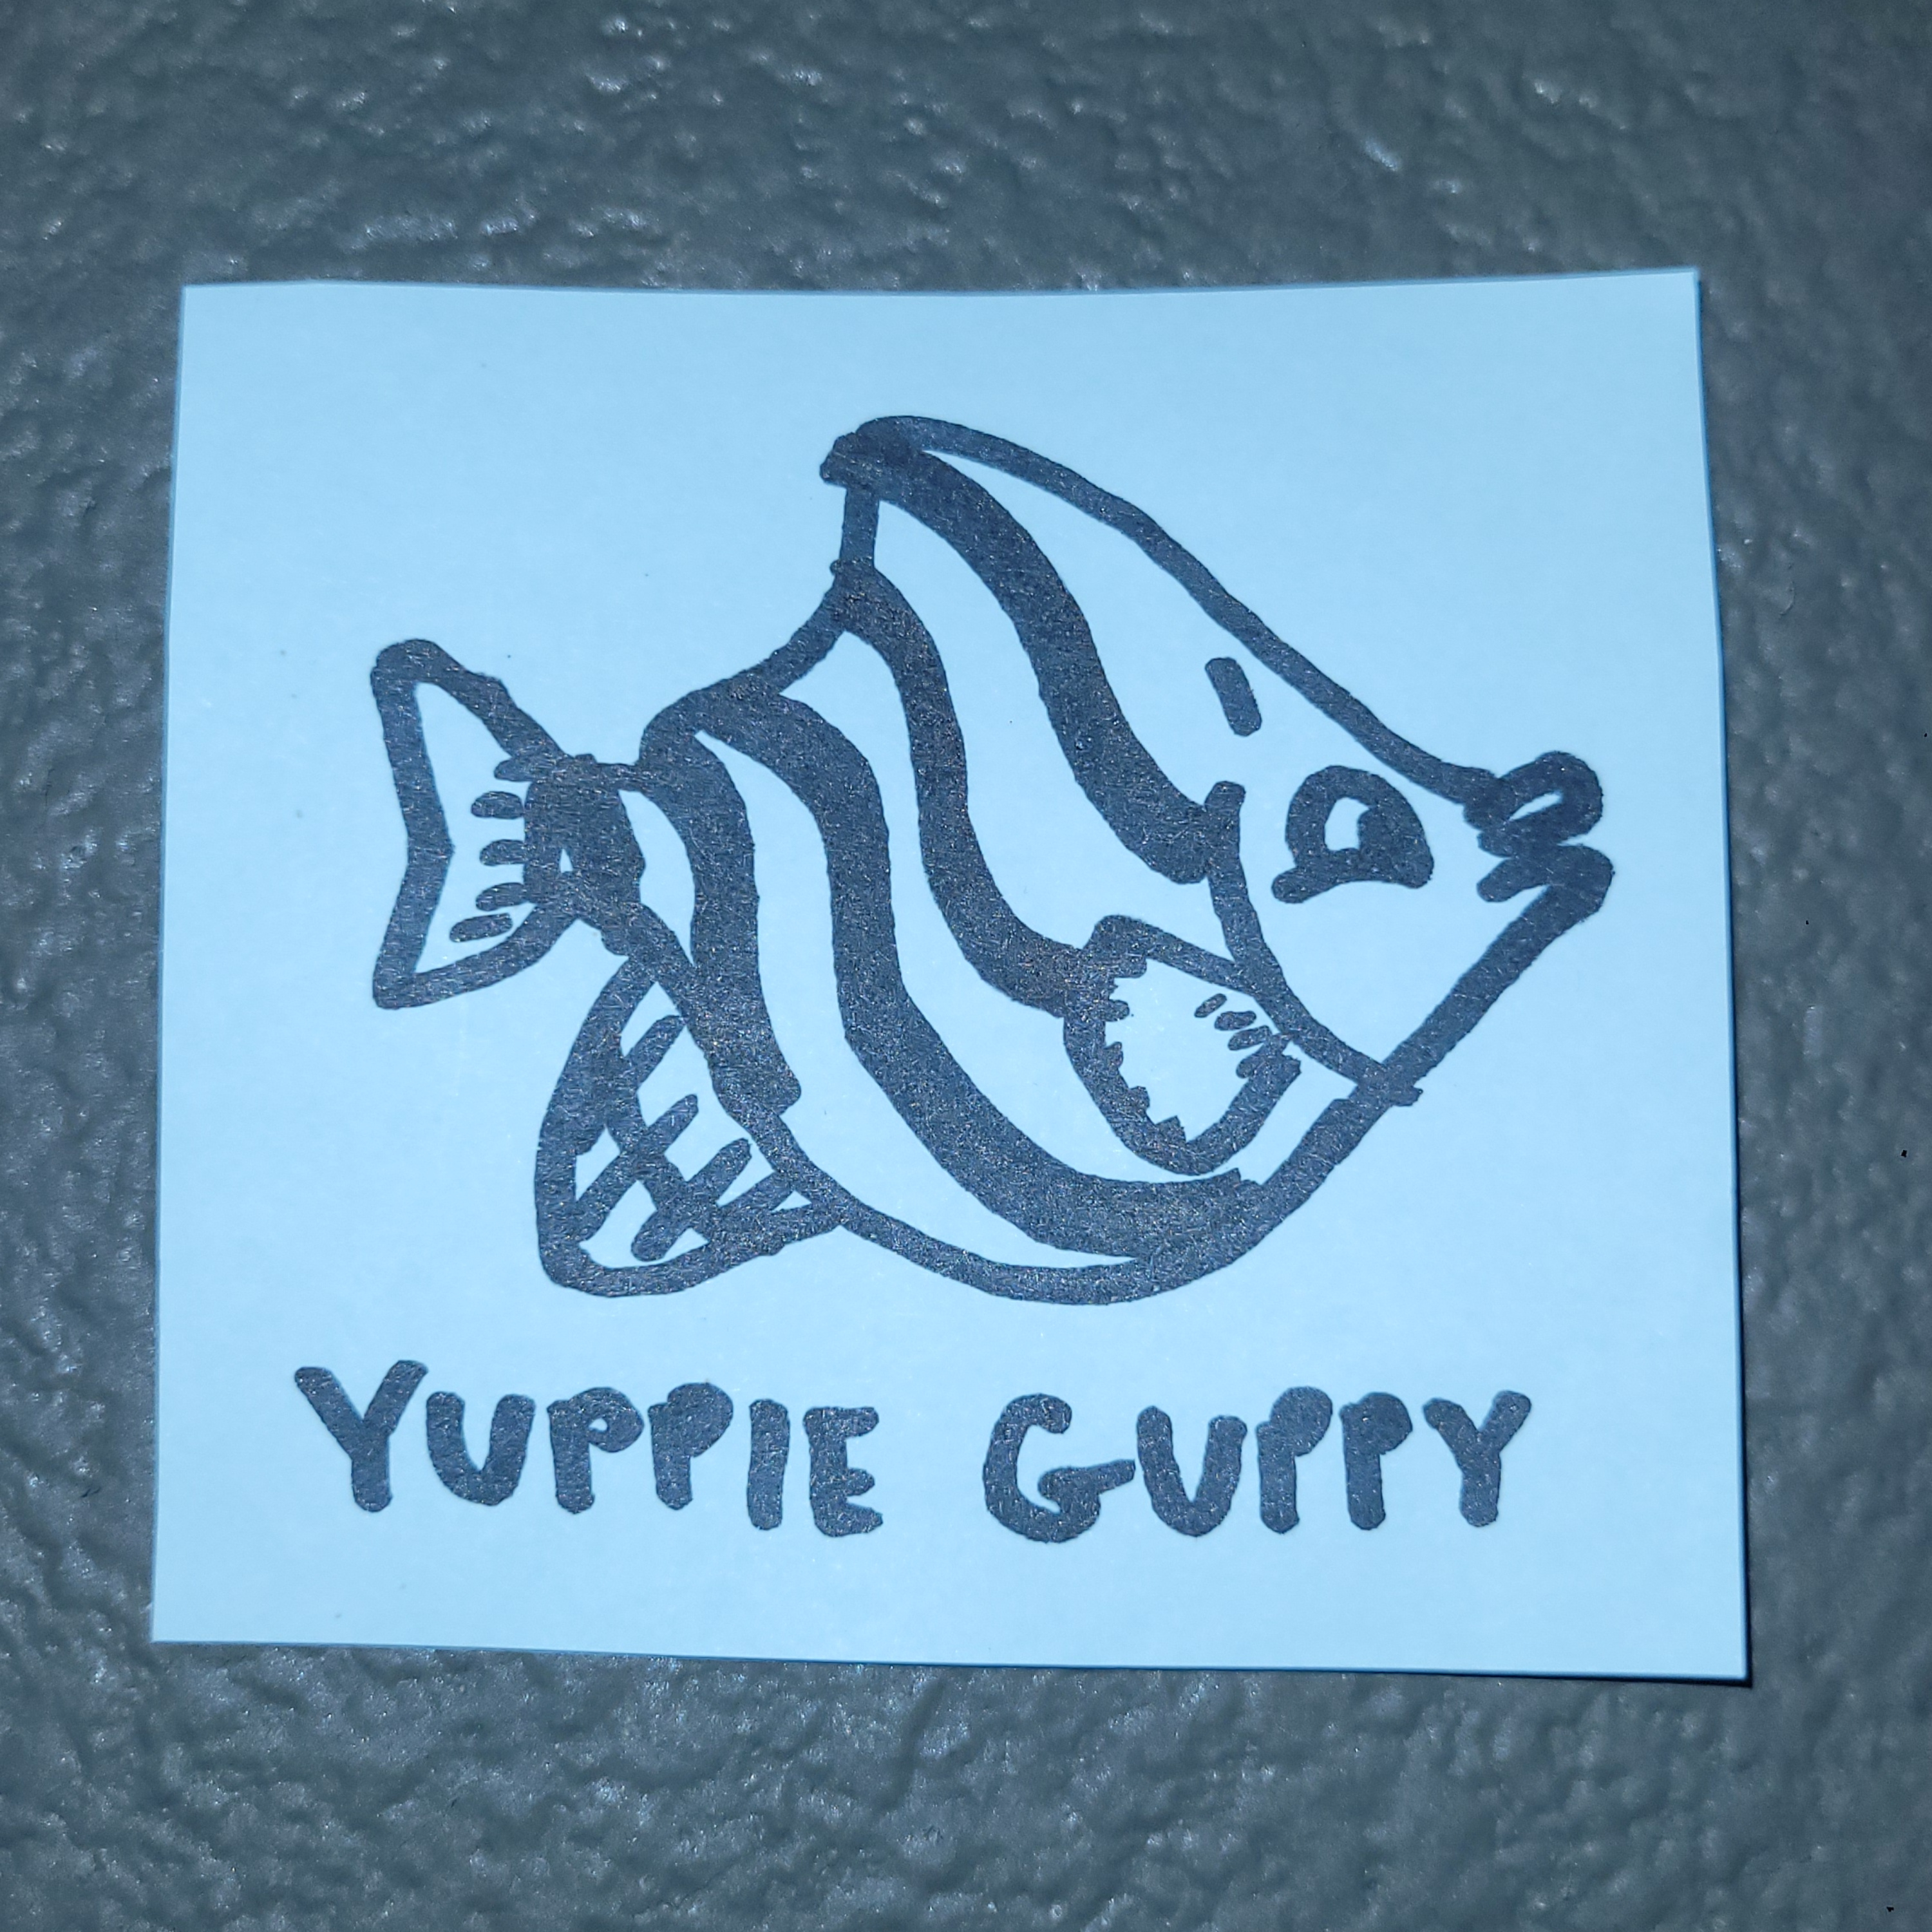 YUPPIE GUPPY